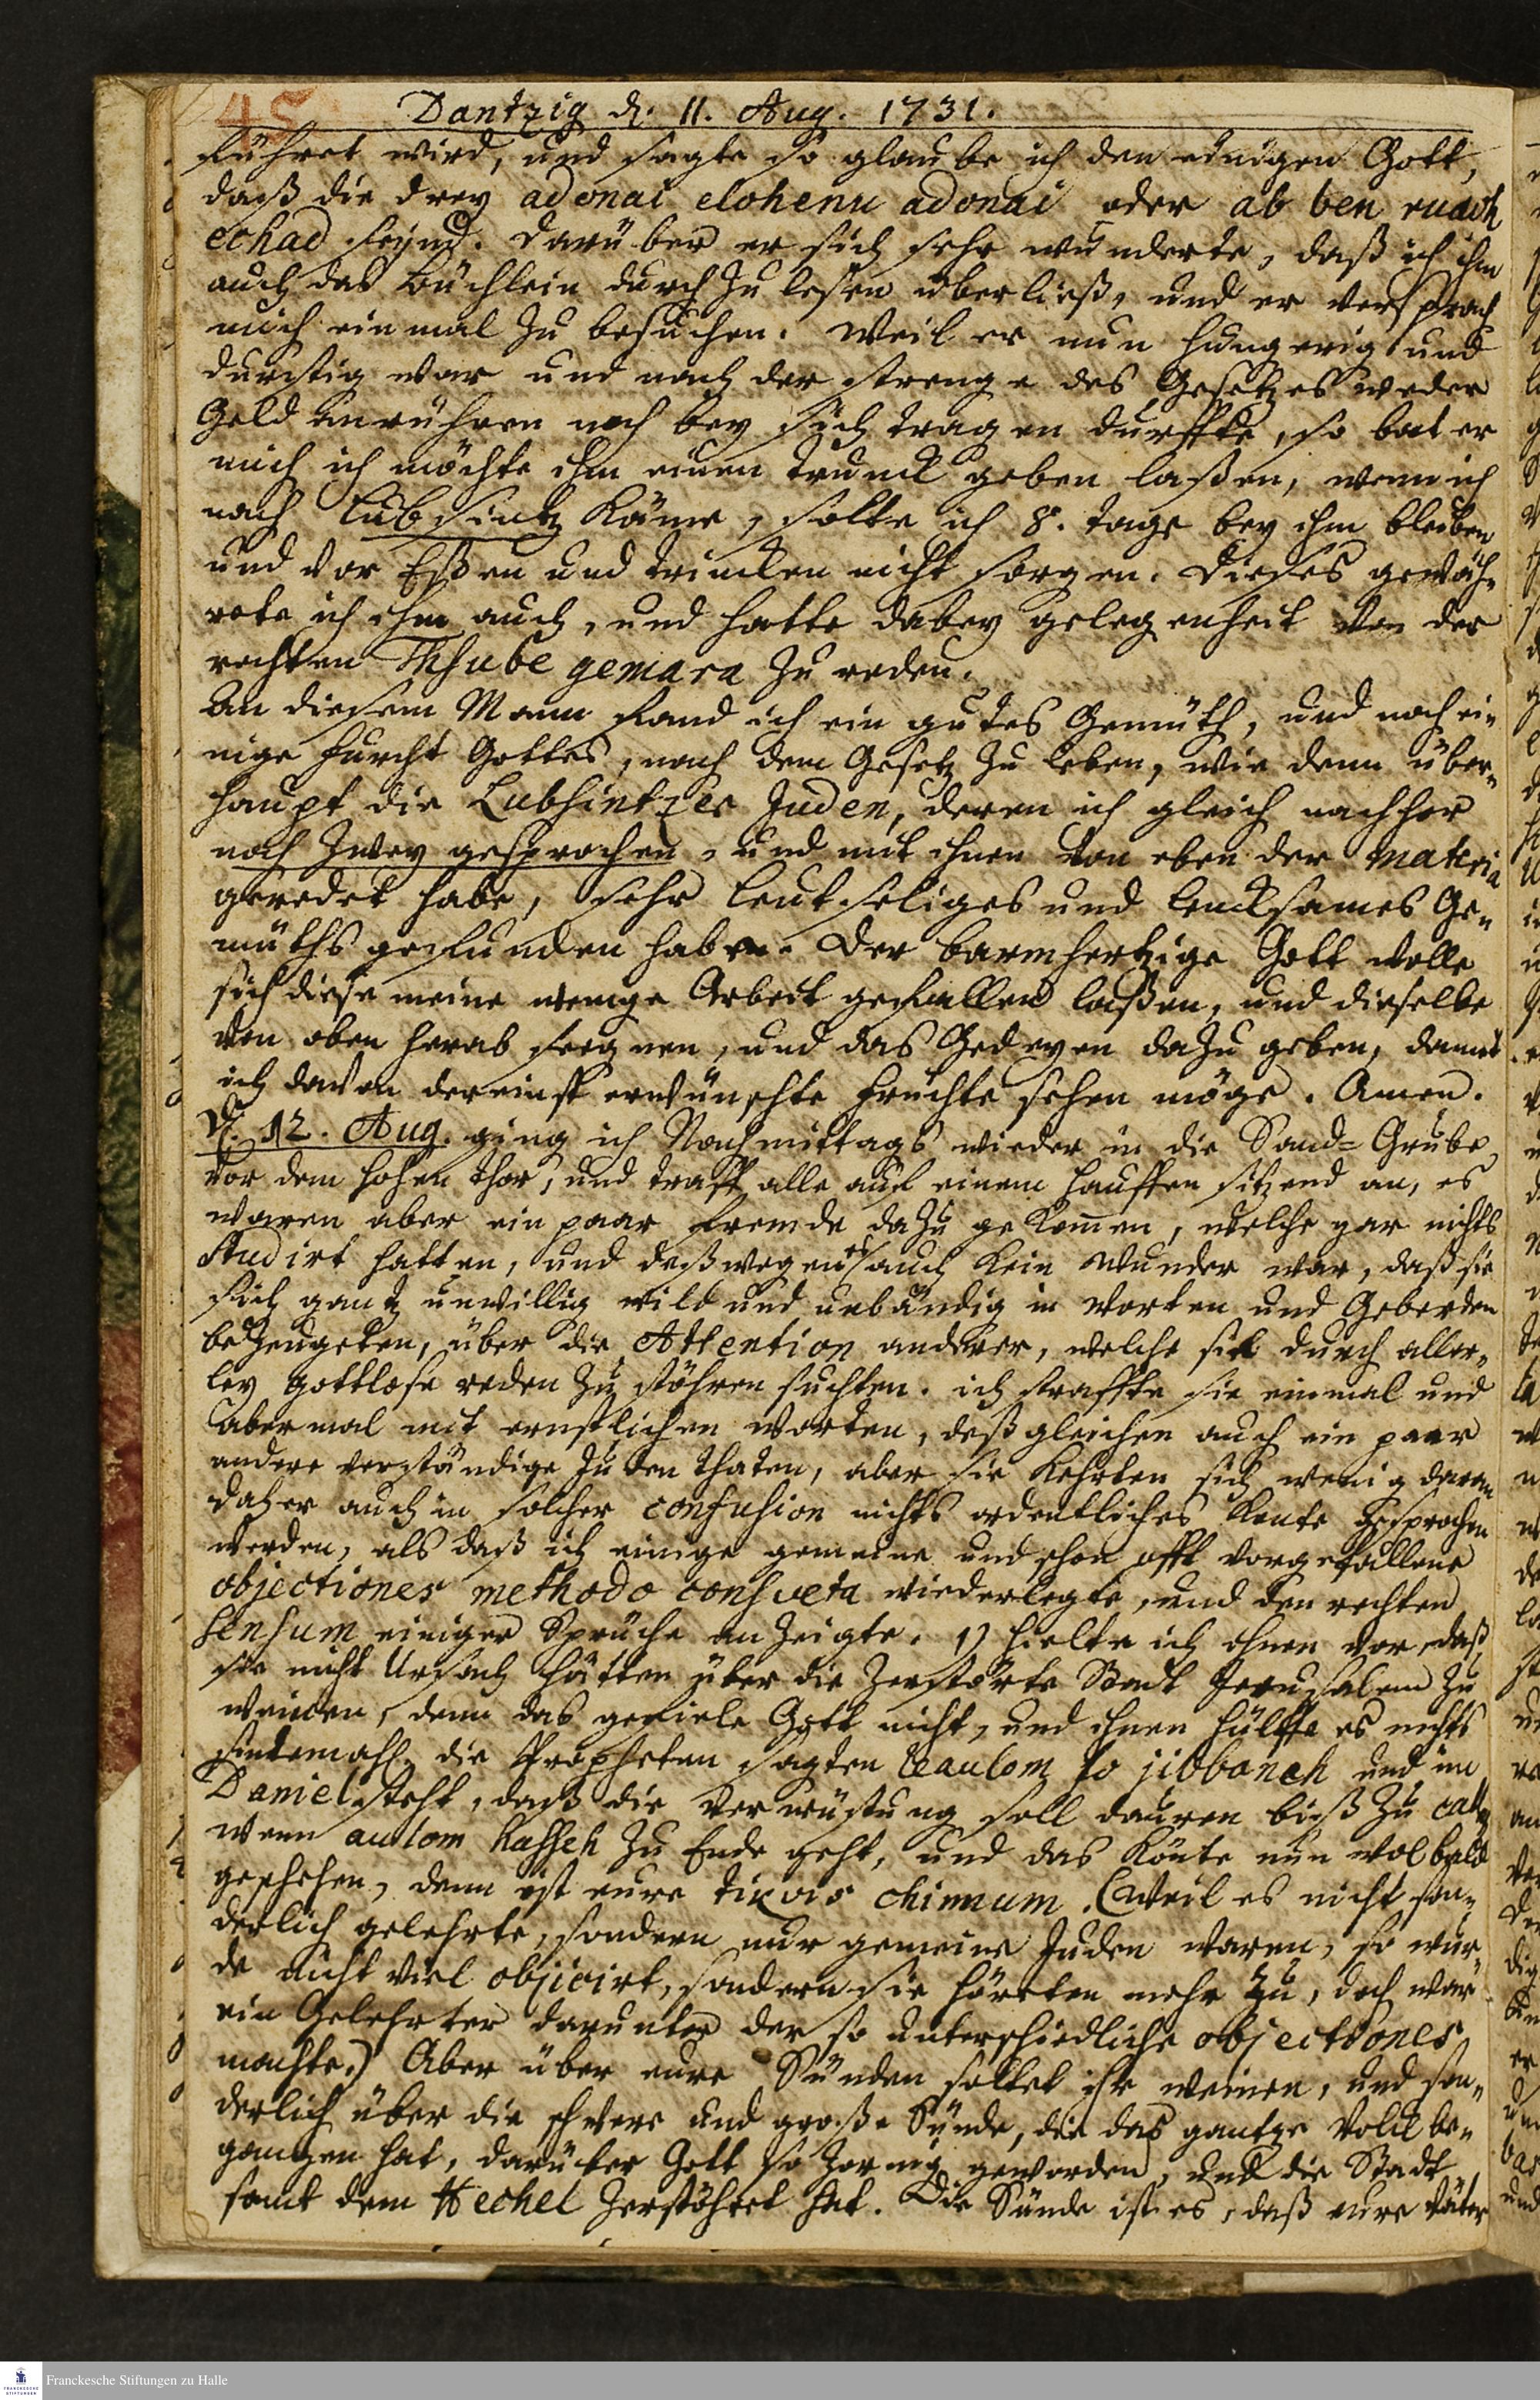 45
Dantzig d. 11. Aug. 1731.
führet wird, und sagte so glaube ich den einigen Gott,
daß die drey adonai elohenu adonai oder ab ben ruach
echad seynd. Darüber er sich sehr wunderte, daß ich ihm
auch das Büchlein durch zu lesen überließ, und er versprach
mich einmal zu besuchen. Weil er nun hungerig und
durstig war und nach der strenge des Gesetzes weder
Geld anrühren noch bey sich tragen durffte, so bat er
mich ich möchte ihm einen trunck geben laßen, wenn ich
nach Lubsintz käme, solte ich 8. tage bey ihm bleiben
und vor Eßen und trincken nicht sorgen. Dieses gewäh„
rete ich ihm auch, und hatte dabey gelegenheit von der
rechten Thsube gemara zu reden.
An diesem Mann fand ich ein gutes Gemüth, und noch ei„
nige furcht Gottes, nach dem Gesetz zu leben, wie denn über„
haupt die Lubsintzer Juden, deren ich gleich nachher
noch zwey gesprochen, und mit ihnen von eben der materia
geredet habe, sehr leutseliges und lencksames Ge„
müths gefunden habe. Der barmhertzige Gott wolle
sich diese meine wenige Arbeit gefallen laßen, und dieselbe
von oben herab seegnen, und das Gedeyen dazu geben, damit
ich davon dereinst erwünschte früchte sehen möge. Amen.
d. 12. Aug. ging ich Nachmittags wieder in die Sand-Grube
vor dem hohen thor, und traff alle auf einem hauffen sitzend an, es
waren aber ein paar fremde dazu gekommen, welche gar nichts
studirt hatten, und deßwegen es auch kein wunder war, daß sie
sich gantz unwillig wild und unbändig in worten und Geberden
bezeugeten, über die Attention anderer, welche sie durch aller„
ley gottlose reden zu stöhren suchten. ich straffte sie einmal und
abermal mit ernstlichen worten, deßgleichen auch ein paar
andere verständige Juden thaten, aber sie kehrten sich wenig daran
daher auch in solcher confusion nichts ordentliches konte gesprochen
werden, als daß ich einige gemeine und schon offt vorgefallene
objectiones methodo consueta wiederlegte, und den rechten
sensum einiger Sprüche anzeigte. 1) hielte ich ihnen vor, daß
sie nicht Ursach hätten über die zerstörte Stadt Jerusalem zu
weinen, denn das gefiele Gott nicht, und ihnen hülffe es nichts
sintemahl die Propheten sagten leaulom lo jibbaneh und im
Daniel steht, daß die verwüstung soll dauren biß zu
wenn aulom hasseh zu Ende geht, und das könte nun wol bald
geschehen, denn ist eure tikvis chinnum. (Weil es nicht son„
derlich gelehrte, sondern nur gemeine Juden waren, so wur„
de nicht viel objicirt, sondern sie höreten mehr zu, doch war
ein Gelehrter darunter der so unterschiedliche objectiones
machte.) Aber über eure Sünden soltet ihr weinen, und son„
derlich über die schwere und große Sünde, die das gantze Volck be„
gangen hat, darüber Gott so zornig geworden, und die Stadt
samt dem Hechel zerstöhret hat. Die Sünde ist es, daß eure Väter
Franckesche Stiftungen zu Halle